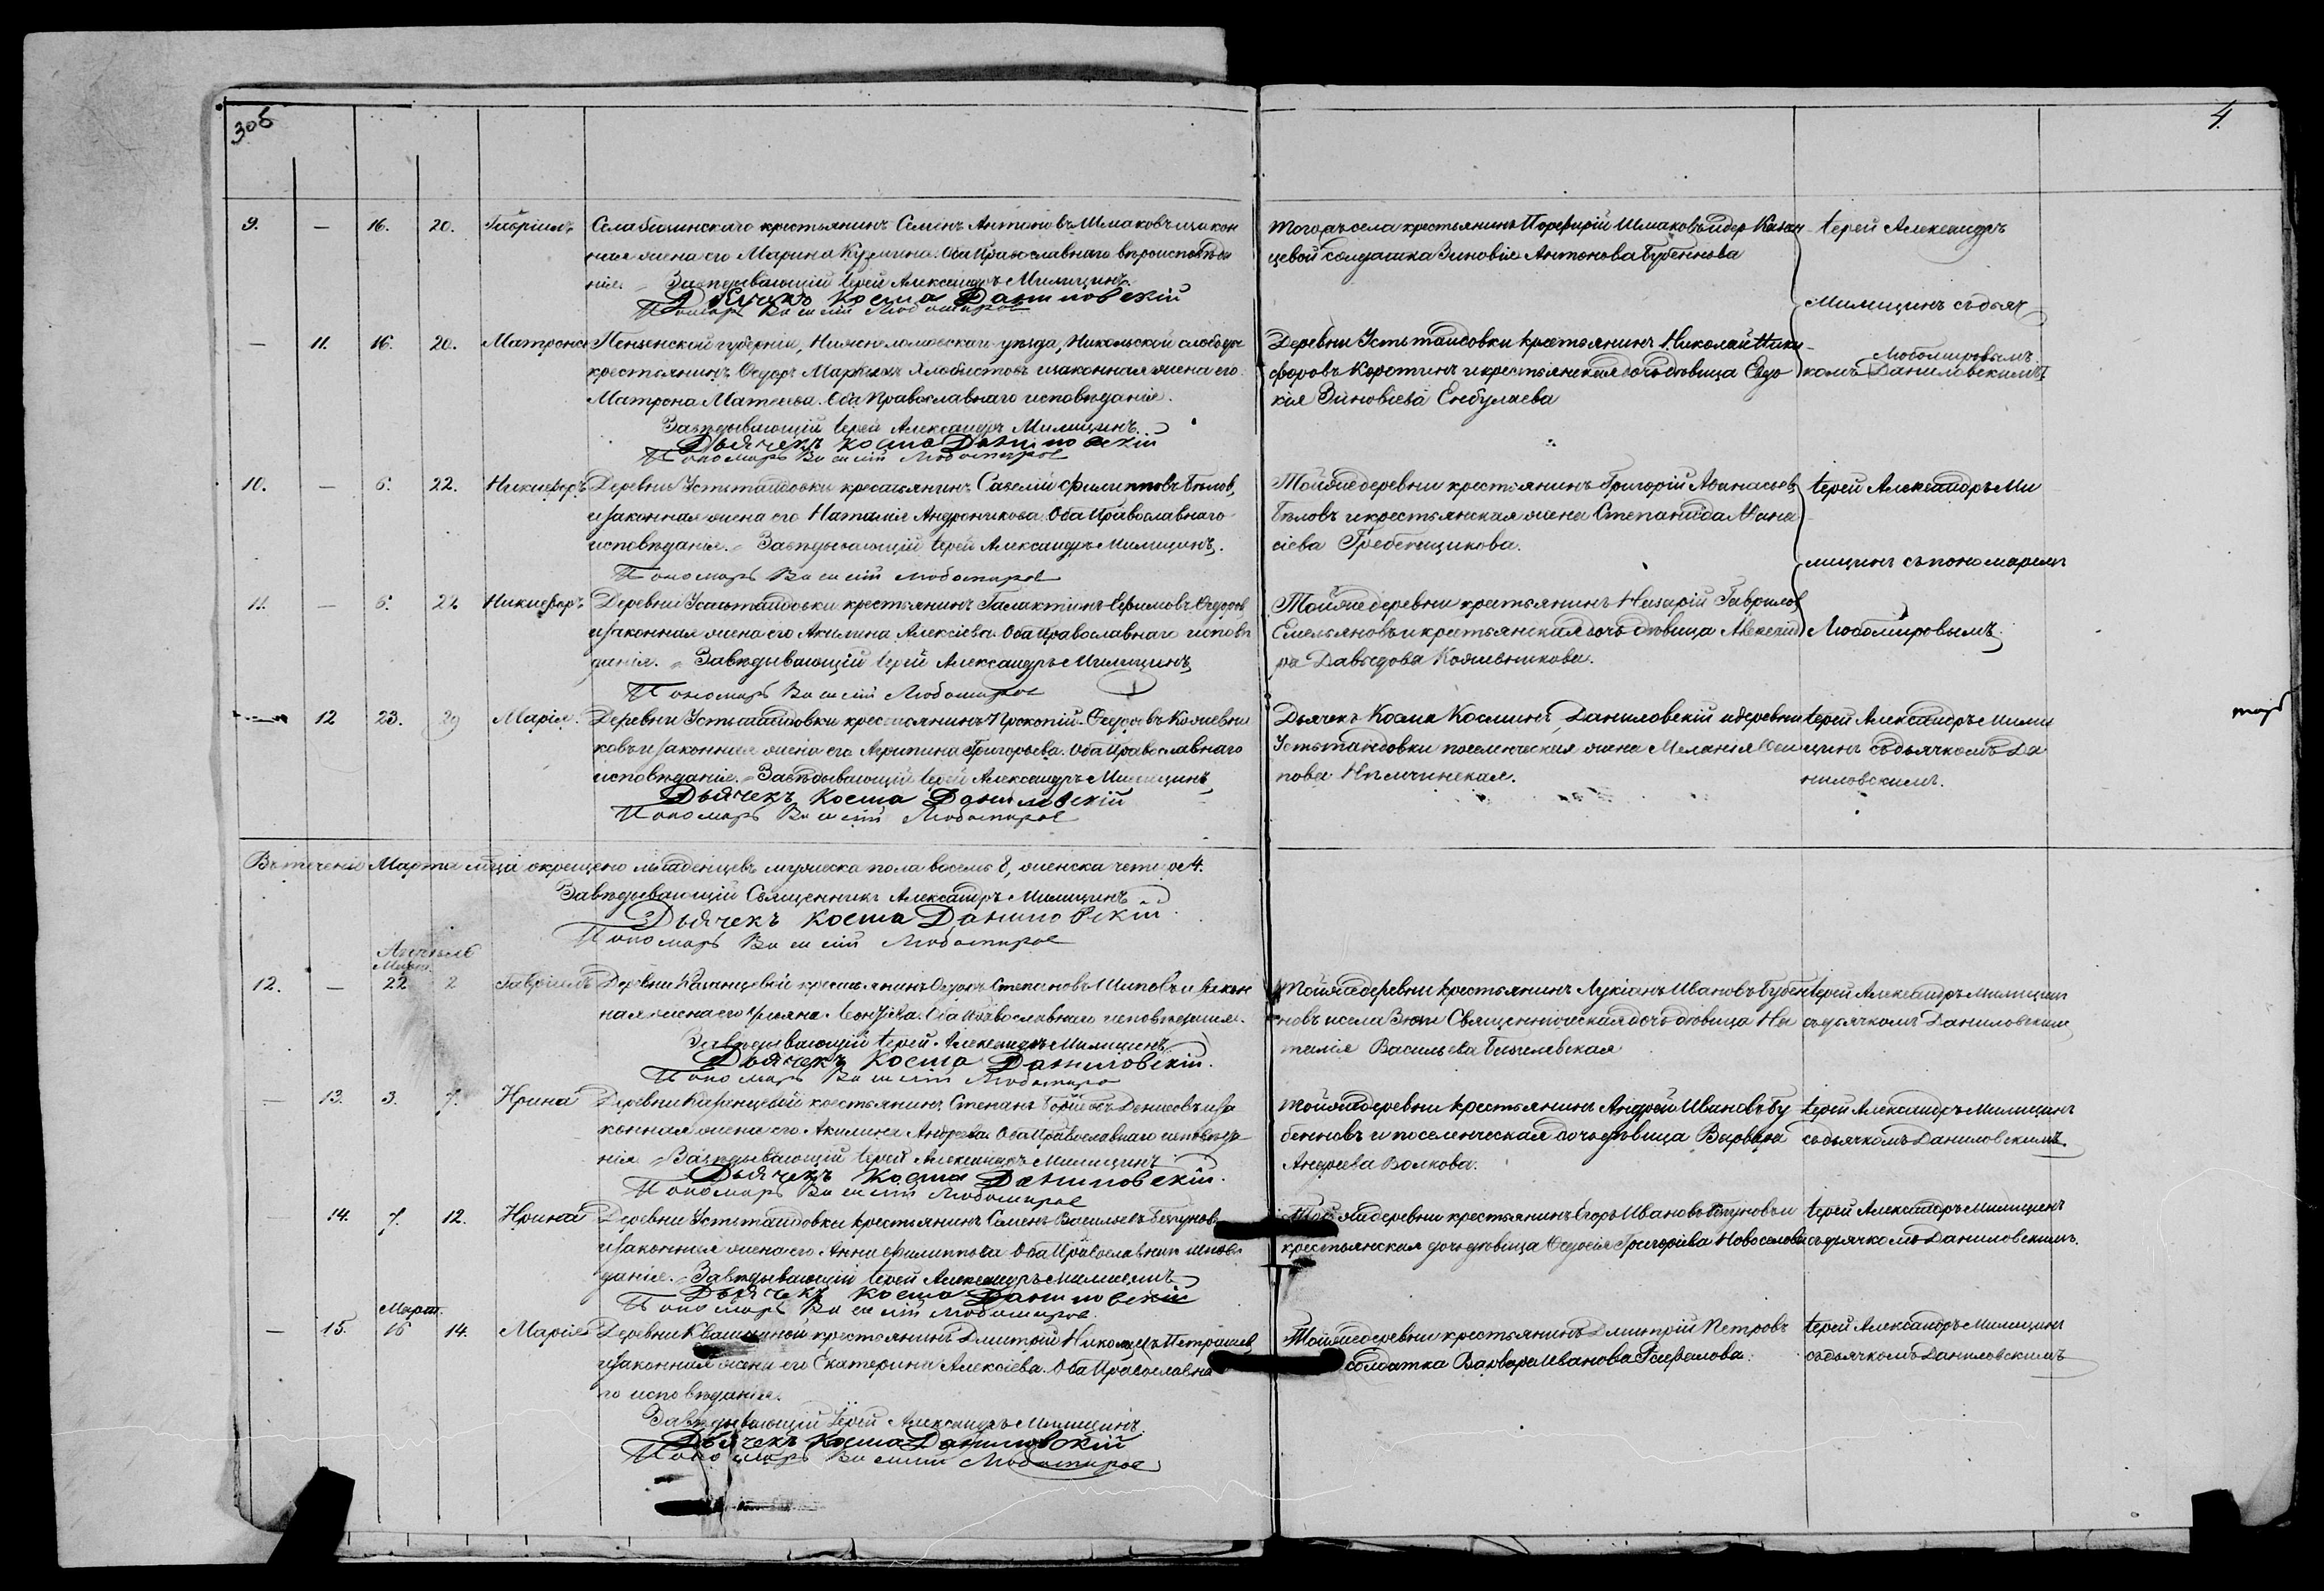 3об
4.
9. — 16. 20. Гавріилъ Села крестьянинъ Семенъ Антоновъ Шмаковъ и закон
ная жена его Марина Кузмина. Оба Православнаго вѣроисповѣда
нія. Завѣдывающій Іерей Александръ Милицинъ.
Дьячекъ Косма Даниловскій
Пономарь Василій Любомировъ
Тогожъ села крестьянинъ Порфирій Шмаковъ и дер. Казан
цевой солдатка Зиновія Антонова Бубеннова
Іерей Александръ
Милицинъ съ дьяч
комъ Даниловскимъ
Любомировымъ.
— 11. 16. 20. Матрона Пензенской губерніи, Нижнеломовскаго уѣзда, Никольской слободы
крестьянинъ Ѳедоръ и законная жена его
Матрона Матѳеева. Оба Православнаго исповѣданія.
Завѣдывающій Іерей Александръ Милицинъ.
Дьячекъ Косма Даниловскій
Пономарь Василій Любомировъ
Деревни Устьтандовки крестьянинъ Николай Ники
форовъ Коротинъ и крестьянская дочь дѣвица Евдо
кія Зиновіева Енбулаева
10. — 6. 22. Никифоръ Деревни Устьтандовки крестьянинъ Савелій Филипповъ Бѣлов,
и законная жена его Наталія Андроникова. Оба Православнаго
исповѣданія. Завѣдывающій Іерей Александръ Милицинъ.
Пономарь Василій Любомировъ
Тойже деревни крестьянинъ Григорій Аѳанасьев
Бѣловъ и крестьянская жена Степанида Аѳана
сіева Гребенщикова.
Іерей Александръ Ми
лицинъ съ пономаремъ
Любомировымъ.
11. — 6. 22 Никифоръ Деревни Устьтандовки крестьянинъ Галактіонъ Ефимовъ Ѳедоров
и законная жена его Акилина Алексіева. Оба Православнаго исповѣ
данія. Завѣдывающій Іерей Александръ Милицинъ
Пономарь Василій Любомировъ
Тойже деревни крестьянинъ Назарій Гаврилов
Емельяновъ и крестьянская дочь дѣвица
ра Давыдова Кожевникова.
— 12 23. 29 Марія. Деревни Устьтандовки крестьянинъ Прокопій Ѳедоровъ Кожевни
ковъ и законная жена его Агрипина Григорьева. Оба Православнаго
исповѣданія. Завѣдывающій Іерей Александръ Милицинъ
Дьячекъ Косма Даниловскій
Пономарь Василій Любомировъ
Дьячекъ Косма Косминъ Даниловскій и деревни
Устьтандовки поселенческая жена Меланія Оси
пова Нѣмчинская.
Іерей Александръ Мили
цинъ съ дьячкомъ Да
ниловскимъ.
Въ теченіе Марта мца окрещено младенцевъ мужеска пола восемь 8, женска четыре 4.
Завѣдывающій Священникъ Александръ Милицинъ
Дьячекъ Косма Даниловскій
Пономарь Василій Любомировъ
Апрѣль
Март.
12. — 22 2 Гавріилъ Деревни Казанцевой крестьянинъ Ѳедоръ Степановъ Шиповъ и закон
ная жена его Оба Православнаго исповѣданія.
Завѣдывающій Іерей Александръ Милицинъ
Дьячекъ Косма Даниловскій.
Пономарь Василій Любомиро
Тойже деревни крестьянинъ Лукіанъ Ивановъ Бубен
новъ и села Священническая дочь дѣвица На
талія Васильева
Іерей Александръ Милицин
съ дьячкомъ Даниловским
— 13. 3. 7. Ирина Деревни Казанцевой крестьянинъ Степанъ Денисовъ и за
конная жена его Акилина Андреева. Оба Православнаго исповѣда
нія. Завѣдывающій Іерей Александръ Милицинъ
Дьячекъ Косма Даниловскій.
Пономарь Василій Любомировъ
Тойже деревни крестьянинъ Андрей Ивановъ Бу
бенновъ и поселенческая дочь дѣвица Варвара
Андреева Волкова.
Іерей Александръ Милицинъ
съ дьячкомъ Даниловскимъ.
— 14. 7. 12. Ирина Деревни Устьтандовки крестьянинъ Семенъ Васильевъ Бѣгунов
и законная жена его Анна Филиппова. Оба Православнаго исповѣ
данія. Завѣдывающій Іерей Александръ Милицинъ
Дьячекъ Косма Даниловскій
Пономарь Василій Любомировъ.
Тойже деревни крестьянинъ Егоръ Ивановъ Бѣгуновъ и
крестьянская дочь дѣвица Ѳедосія Григоріева Новоселова
Іерей Александръ Милицинъ
съ дьячкомъ Даниловскимъ.
Март.
— 15. 16 14. Марія Деревни Квашниной крестьянинъ Дмитрій Николаевъ Петрашев
и законная жена его Екатерина Алексіева. Оба Православна
го исповѣданія.
Завѣдывающій Іерей Александръ Милицинъ.
Дьячекъ Косма Даниловскій
Пономарь Василій Любомировъ
Тойже деревни крестьянинъ Дмитрій Петровъ
солдатка Варвара Иванова
Іерей Александръ Милицинъ
съ дьячкомъ Даниловскимъ